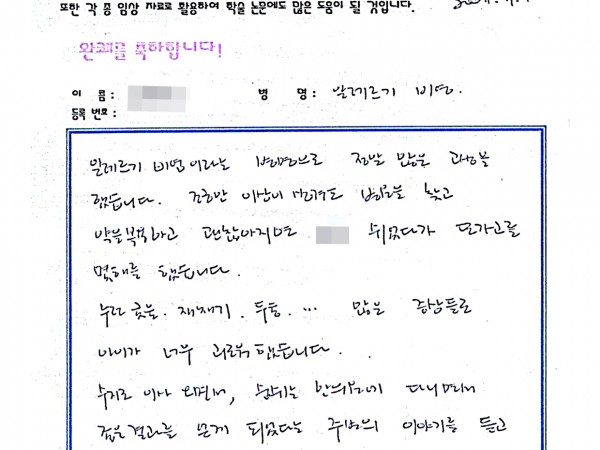 또한 각 종 임상 자료로 활용하여 학술 논문에도 많은 도움이 될 것입니다.
완쾌를 축하합니다!
이 름 : 병 명 : 알레르기 비염.
등록 번호 :
알레르기 비염이라는 병명으로 정말 많은 고생을
했습니다. 조금만 이상이 생겨도 병원을 찾고
약을 복용하고 괜찮아지면 쉬었다가 또가고를
몇해를 했습니다.
누런 콧물. 재채기. 두통. ... 많은 증상들로
아이가 너무 괴로워 했습니다.
수지로 이사 오면서, 숨쉬는 한의원에 다니면서
좋은결과를 얻게 되었다는 주변의 이야기를 듣고